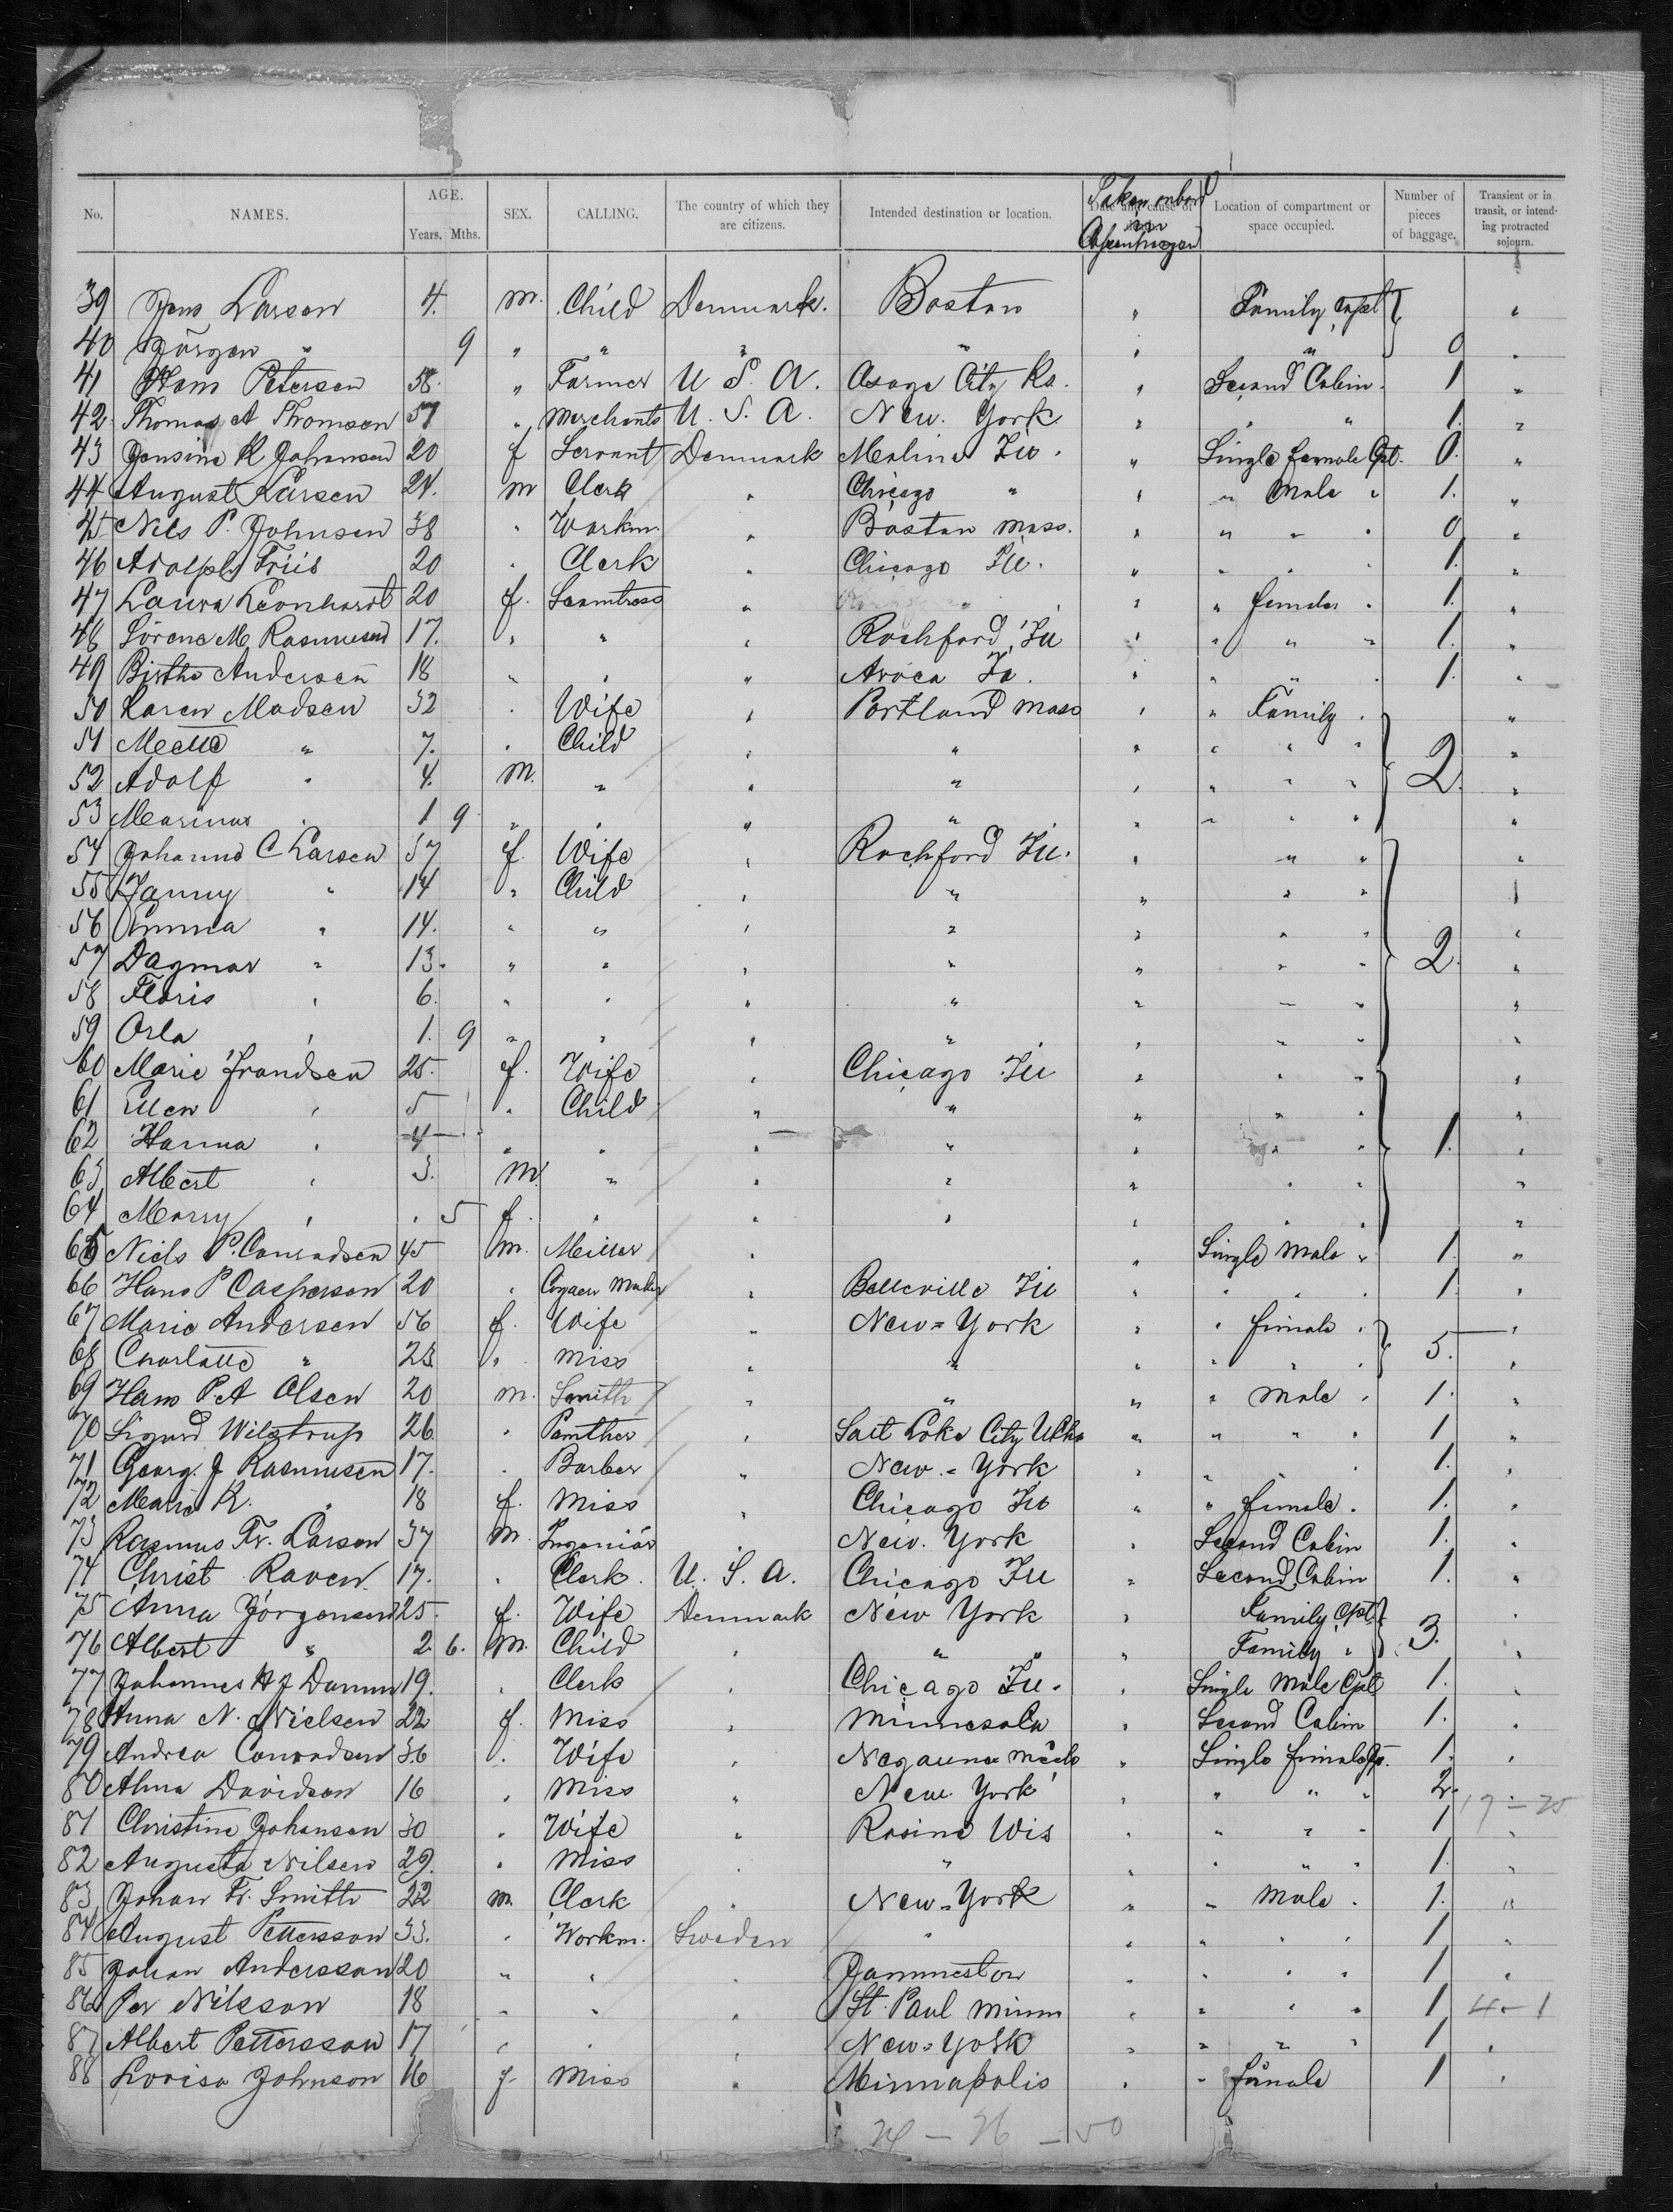 No. NAMES. AGE. Years. Mths. SEX. CALLING. The country of which they are citizens. Intended destination or location. Date and cause of Taken onbord in Copenhagen Location of compartment or space occupied. Number of pieces of baggage. Transient or in transit, or intending protracted sojourn.
39 Jens Larsen 4. m. Child Denmark. Boston " Family Cpt "
40 Jörgen " 9 " " " " " " 0 "
41 Hans Petersen 58. " Farmer U. S. A. Osage City Ks. " Second Cabin. 1 "
42. Thomas A Thomsen 57 " Merchants U. S. A. New. York " " " 1. "
43 Jensine K Johansen 20 f Servant Denmark Moline Ill. " Single female Cpt. 0. "
44 August Larsen 24. m Clerk " Chicago " " " Male " 1. "
45 Nils P. Johnsen 38 " Workm. " Boston Mass. " " " " 0 "
46 Adolph Friis 20 " Clerk " Chicago Ill. " " " " 1. "
47 Laura Leonhardt 20 f. Seamtress " " " " female " 1. "
48 Sörene M. Rasmussen 17. " " " Rochford, Ill " " " " 1. "
49 Birthe Andersen 18 " " " Avoca Ia. " " " " 1. "
50 Karen Madsen 32 " Wife " Portland Mass " " Family " "
51 Mette " 7. " Child " " " " " " 2. "
52 Adolf " 4. M. " " " " " " " "
53 Marinus " 1 9 " " " " " " " " "
54 Johanne C Larsen 37 f. Wife " Rochford Ill. " " " "
55 Fanny " 14 " Child " " " " " "
56 Emma " 14. " " " " " " " "
57 Dagmar " 13. " " " " " " " 2. "
58 Floris " 6. " " " " " " " "
59 Orla " 1. 9 " " " " " " " "
60 Marie Frandsen 25. f. Wife " Chicago Ill " " " "
61 Ellen " 5 " Child " " " " " "
62 Hanna " 4 " " " " " " " 1. "
63 Albert " 3. M. " " " " " " "
64 Marry " " 5 f. " " " " " " "
65 Niels P. Conradsen 45 m. Miller " " Single Male " 1. "
66 Hans P Caspersen 20 " Cigaer Maker " Belleville Ill " " " " 1. "
67 Marie Andersen 56 f. Wife " New=York " " female " "
68 Charlotte " 23 " Miss " " " " " " 5. "
69 Hans P. A Olsen 20 m. Smith " " " " Male " 1. "
70 Sigurd Wilstrup 26 " Panther " Salt Lake City Utha " " " " 1 "
71 Georg. J Rasmussen 17. " Barber " New.=York " " " 1. "
72 Marie K. " 18 f. Miss " Chicago Ill " " female. 1. "
73 Rasmus Fr. Larsen 37 M. Ingeniör " New. York " Second Cabin 1. "
74 Christ Raven 17. " Clerk. U. S. A. Chicago Ill " Second Cabin 1. "
75 Anna Jörgensen 25. f. Wife Denmark New York " Family Cpt. "
76 Albert " 2. 6. M. Child " " " " Family " 3. "
77 Johannes H J Damm 19. " Clerk " Chicago Ill. " Single Male Cpt 1. "
78 Anna N. Nielsen 22 f. Miss " Minnesota " Second Cabin 1. "
79 Andrea Conradsen 36 " Wife " Negaunee Mich " Single female Cp. 1. "
80 Alma Davidsen 16 " Miss " New. York " " " " 2. 17 - 25
81 Christine Johansen 30 " Wife " Rasine Wis " " " " 1 "
82 Augusta Nilsen 29. " Miss " " " " " " 1. "
83 Johan Fr. Smith 22 m. Clerk " New=York " " Male " 1. "
84 August Pettersson 33. " Workm. Sweden " " " " " 1 "
85 Johan Andersson 20 " " " Jamnestow " " " " 1 "
86 Per Nilsson 18 " " " St. Paul Minn " " " " 1 4 - 1
87 Albert Pettersson 17 " " " New=York " " " " 1 "
88 Lovisa Johnson 16 f. Miss " Minnapolis " " female 1 "
24 - 26 - 50